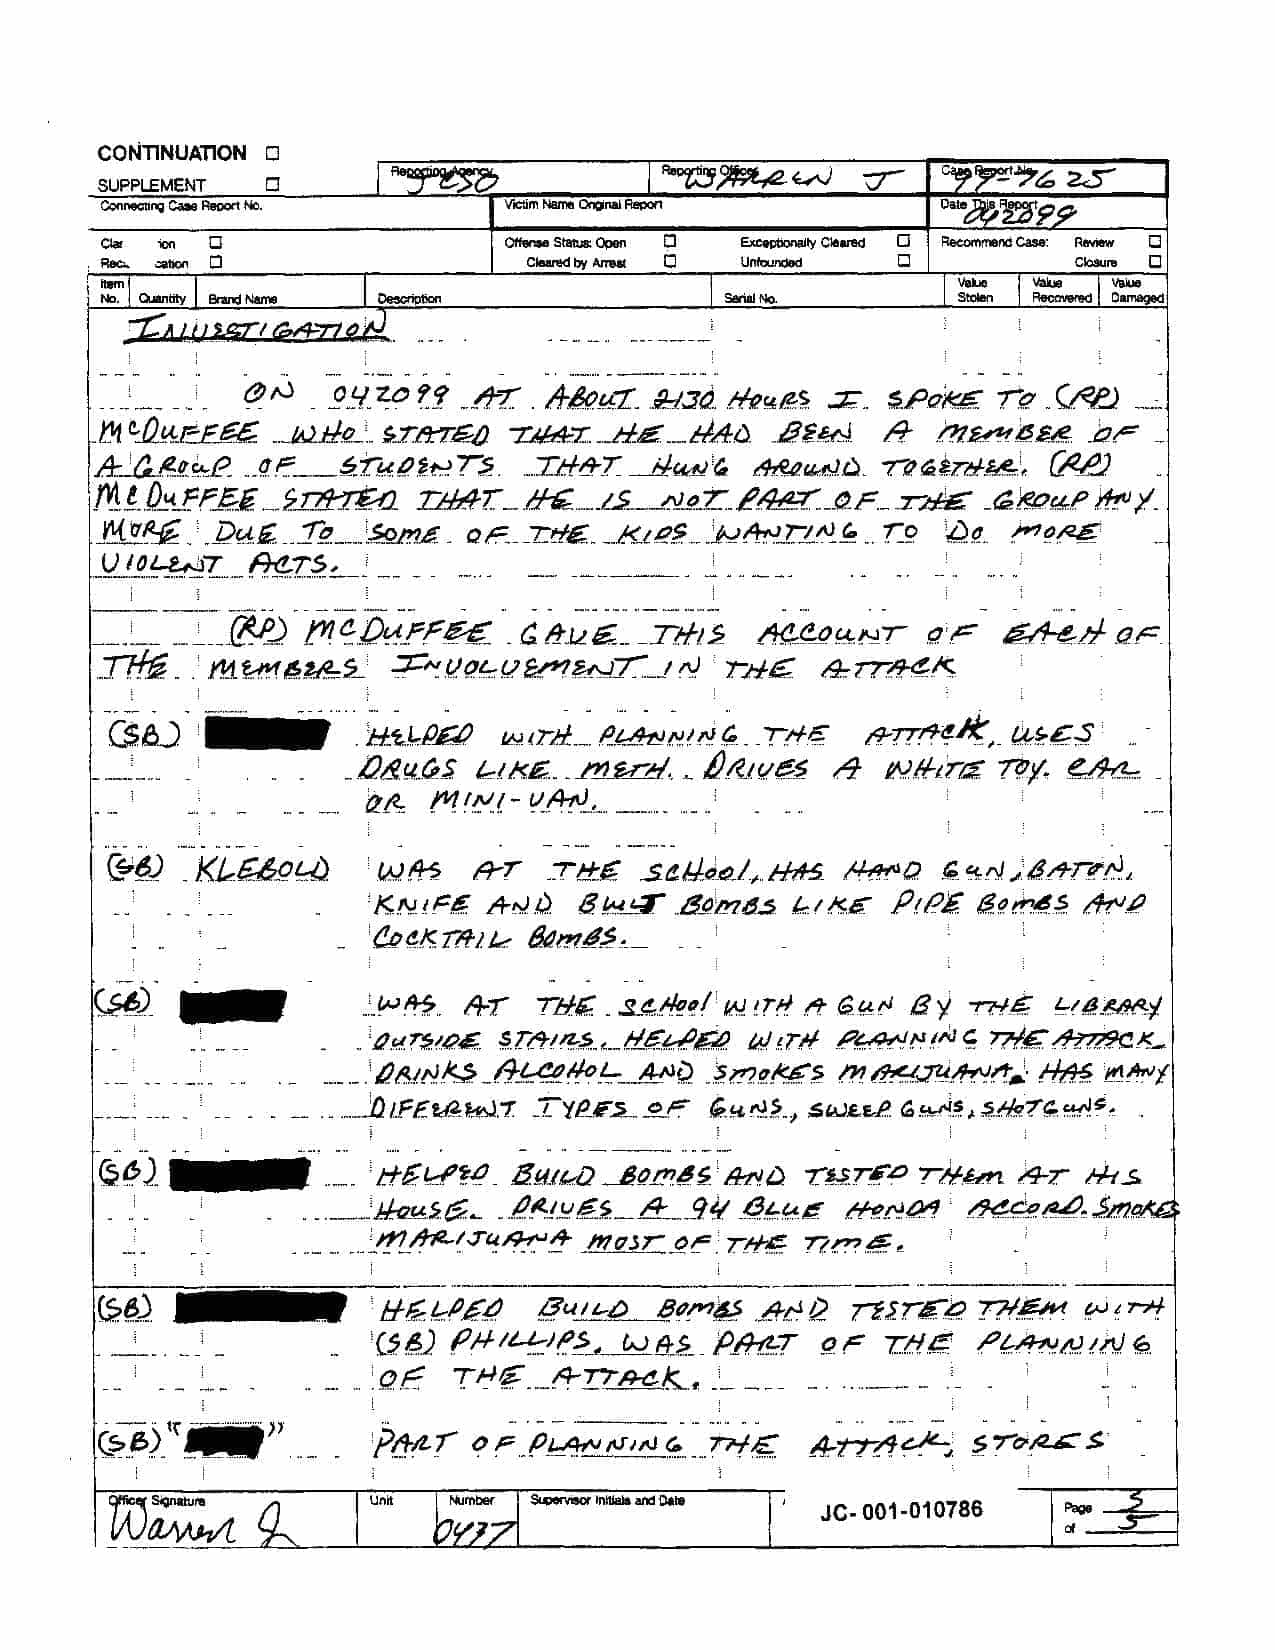 CONTINUATION
SUPPLEMENT
Reporting Agency JCSO
Reporting Officer WARREN J
Case Report No. 99-7625
Connecting Case Report No.
Victim Name Original Report
Date This Report 042099
Offense Status: Open
Exceptionally Cleared
Recommend Case: Review
Cleared by Arrest
Unfounded
Closure
Item No.
Quantity
Brand Name
Description
Serial No.
Value Stolen
Value Recovered
Value Damaged
INVESTIGATION
ON 042099 AT ABOUT HOURS I SPOKE TO (RP)
MCDUFFEE WHO STATED THAT HE HAD BEEN A MEMBER OF
A GROUP OF STUDENTS THAT HUNG AROUND TOGETHER. (RP)
MCDUFFEE STATED THAT HE IS NOT PART OF THE GROUP ANY
MORE DUE TO SOME OF THE KIDS WANTING TO DO MORE
VIOLENT ACTS.
(RP) MCDUFFEE GAVE THIS ACCOUNT OF EACH OF
THE MEMBERS INVOLVEMENT IN THE ATTACK
(SB) HELPED WITH PLANNING THE ATTACK, USES
DRUGS LIKE METH. DRIVES A WHITE TOY. CAR
OR MINI-VAN.
(SB) KLEBOLD WAS AT THE SCHOOL, HAS HAND GUN, BATON,
KNIFE AND BUILT BOMBS LIKE PIPE BOMBS AND
COCKTAIL BOMBS.
(SB) WAS AT THE SCHOOL WITH A GUN BY THE LIBRARY
OUTSIDE STAIRS. HELPED WITH PLANNING THE ATTACK
DRINKS ALCOHOL AND SMOKES MARIJUANA. HAS MANY
DIFFERENT TYPES OF GUNS, SWEEP GUNS, SHOTGUNS.
(SB) HELPED BUILD BOMBS AND TESTED THEM AT HIS
HOUSE. DRIVES A 94 BLUE HONDA ACCORD. SMOKES
MARIJUANA MOST OF THE TIME.
(SB) HELPED BUILD BOMBS AND TESTED THEM WITH
(SB) PHILLIPS. WAS PART OF THE PLANNING
OF THE ATTACK.
(SB) " " PART OF PLANNING THE ATTACK, STORES
Officer Signature Warren J
Unit
Number 0437
Supervisor Initials and Date
JC-001-010786
Page 5
of 5